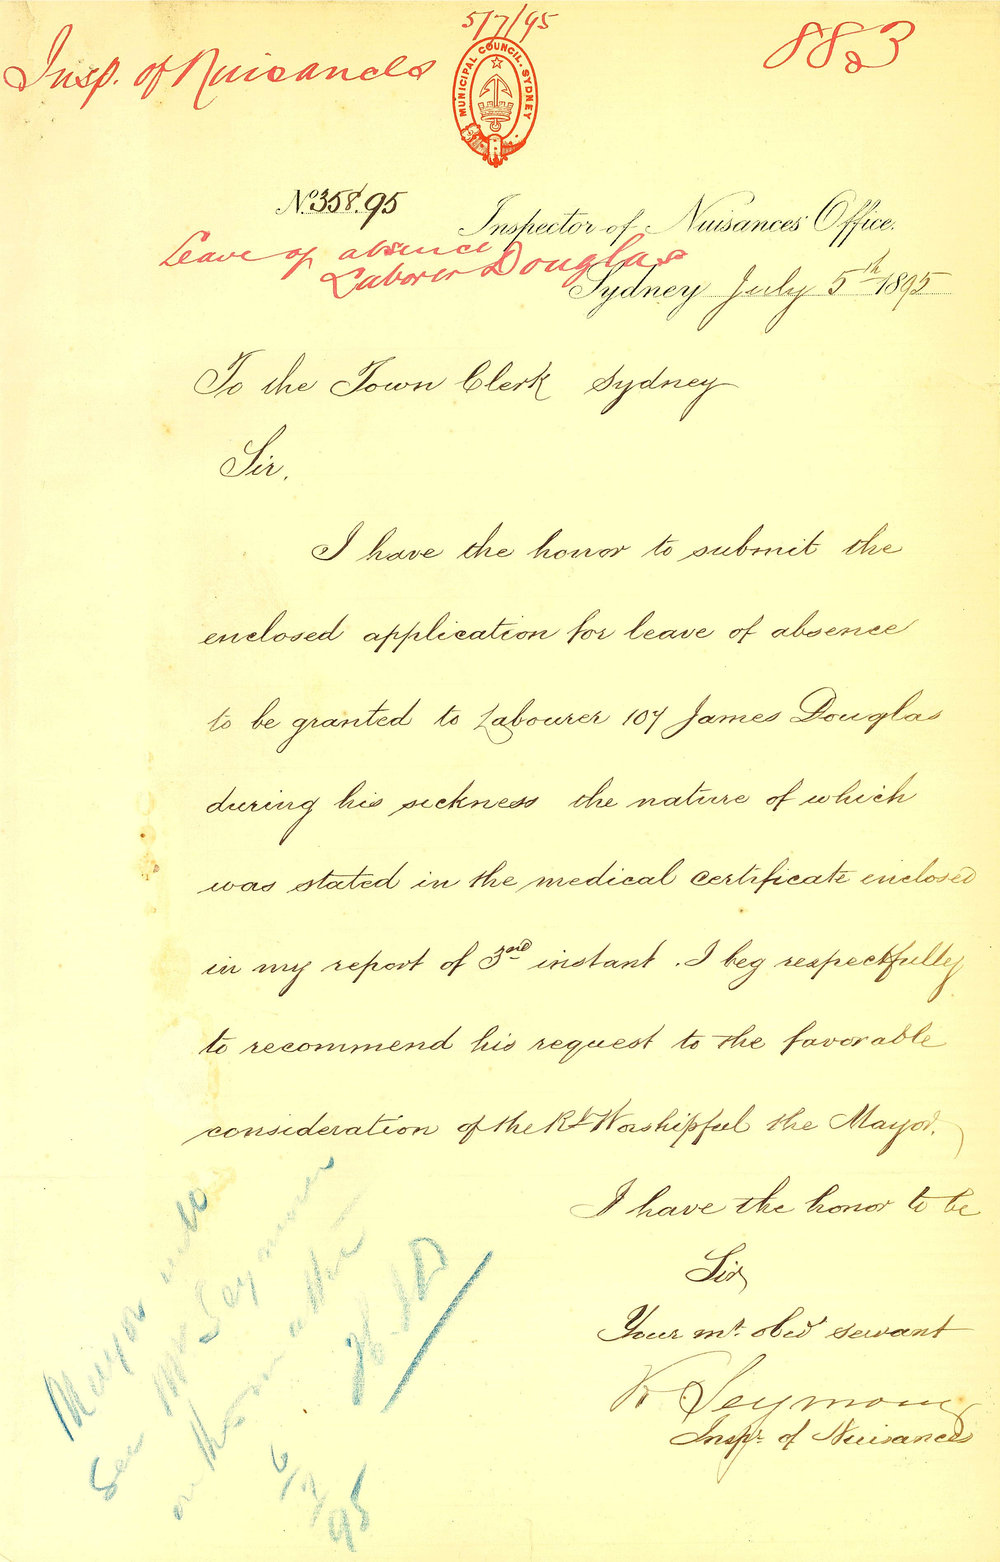 5/7/95
Insp. of Nuisances
883
MUNICIPAL COUNCIL. SYDNEY
No. 358.95
Inspector of Nuisances Office.
Leave of absence
Laborer Douglas
Sydney July 5th 1895
To the Town Clerk Sydney
Sir,
I have the honor to submit the
enclosed application for leave of absence
to be granted to Labourer 107 James Douglas
during his sickness the nature of which
was stated in the medical certificate enclosed
in my report of 3rd instant. I beg respectfully
to recommend his request to the favorable
consideration of the Rt Worshipful the Mayor.
I have the honor to be
Sir
Your mt. obed servant
R. Seymour
Inspr. of Nuisances
Mayor will
see Mr Seymour
on the matter
6/7/95